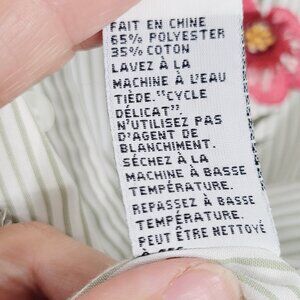 FAIT EN CHINE
65% POLYESTER
35% COTON
LAVEZ À LA
MACHINE À L'EAU
TIÈDE."CYCLE
DÉLICAT"
N'UTILISEZ PAS
D'AGENT DE
BLANCHIMENT.
SÉCHEZ À LA
MACHINE À BASSE
TEMPÉRATURE.
REPASSEZ À BASSE
TEMPÉRATURE.
PEUT ÊTRE NETTOYÉ
À SEC